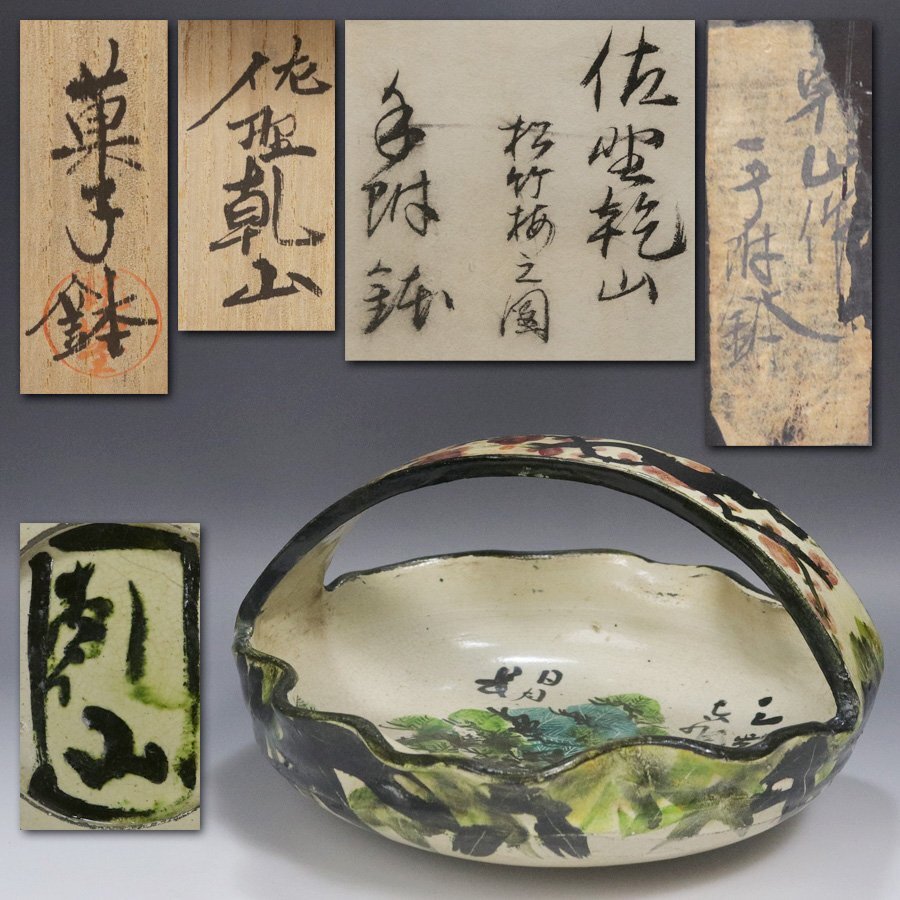 菓子鉢
佐野乾山
佐野乾山
松竹梅之図
手附鉢
乾山作
手附鉢
乾山